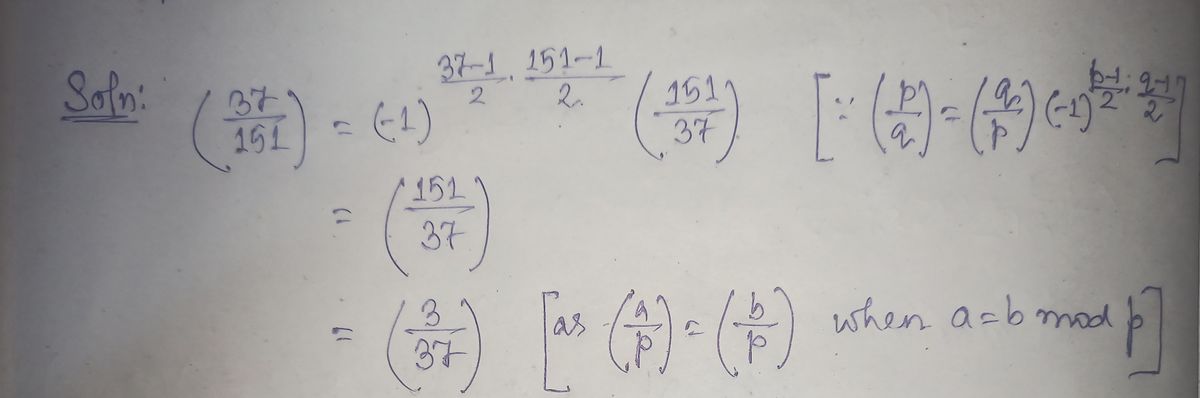 Soln: (37/151) = (-1)^(37-1/2 · 151-1/2) (151/37) [∵ (p/q) = (q/p) (-1)^(p-1/2 · q-1/2)]
= (151/37)
= (3/37) [as (a/p) = (b/p) when a=b mod p]